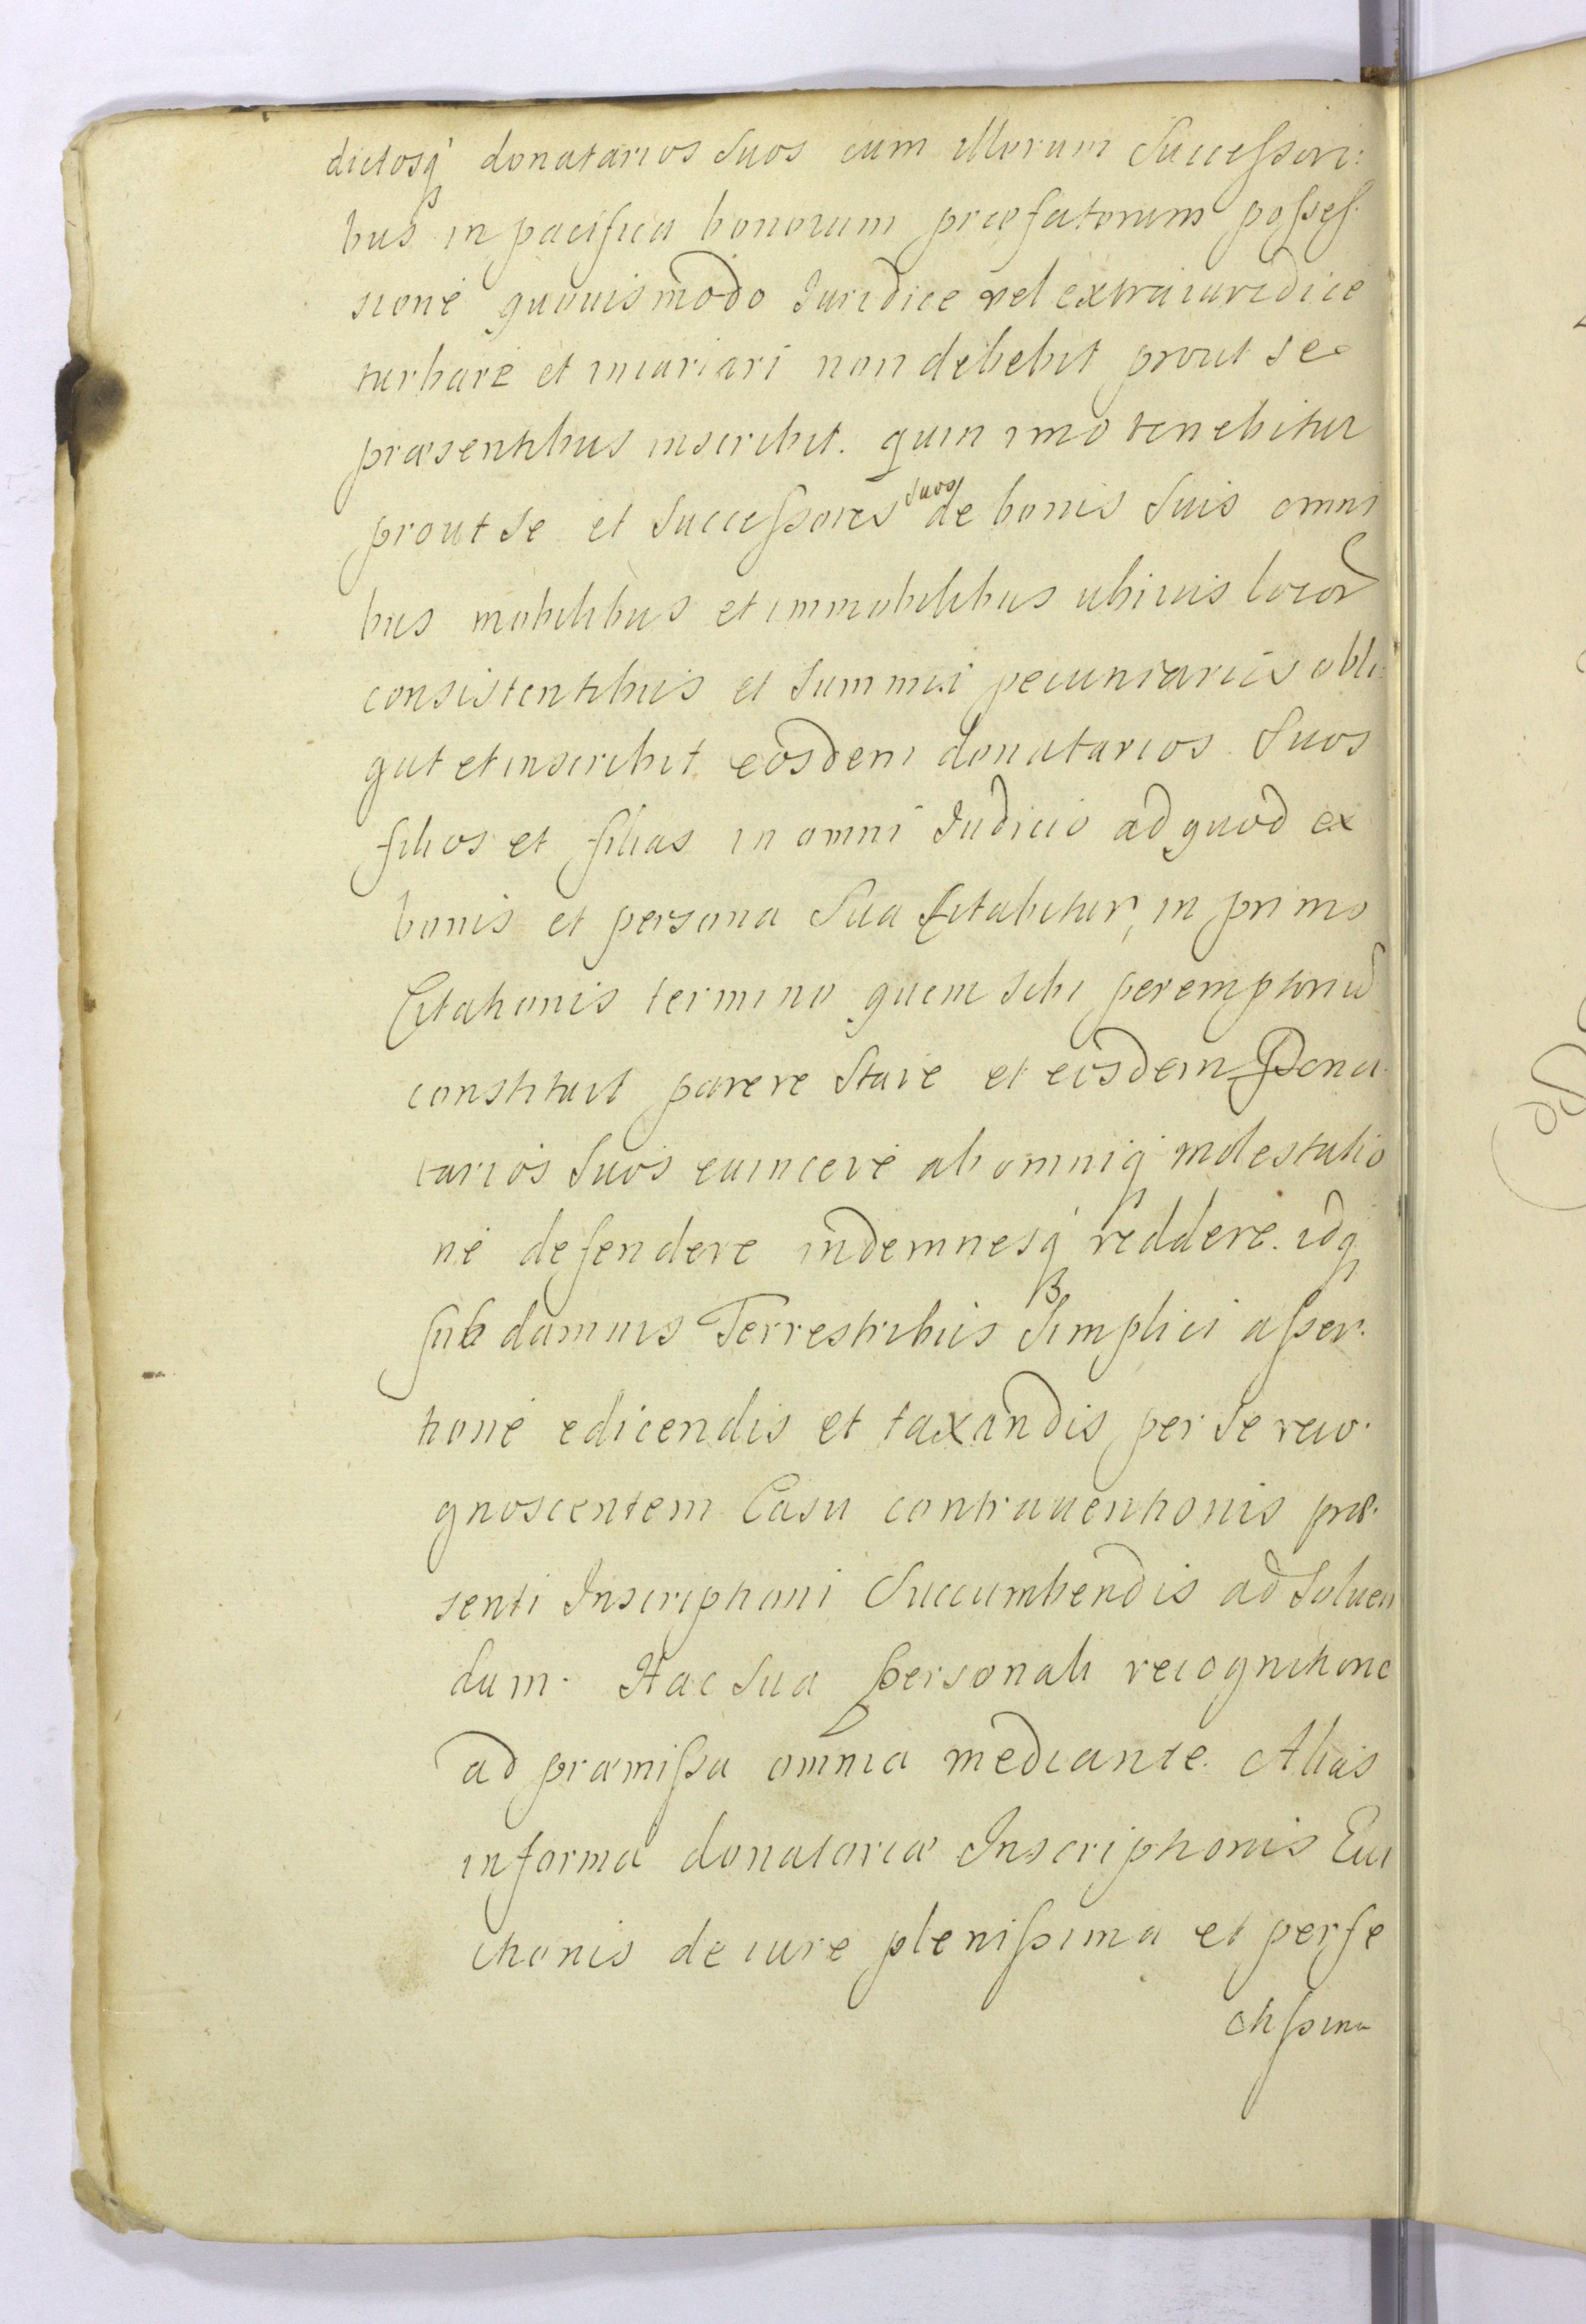 dictosq donatarios suos cum illorum successori:
bus in pacifica bonorum præfatorum posses-
sione quouismodo Juridice vel extraiuridice
turbare et iniuriari non debebit prout se
præsentibus inscribit. quin imo tenebitur
prout se et successores suos de bonis suis omni
bus mobilibus et immobilibus ubiuis locor
consistentibus et summis pecuniariis obli:
gat et inscribit eosdem donatarios suos
filios et filias in omni Judicio ad quod ex
bonis et persona sua Citabitur, in primo
Citationis termino quem sibi peremptoriu
constituit parere stare et eosdem Dona-
tarios suos euincere ab omniq molestatio
ne defendere indemnesq reddere. idq
sub damnis Terrestribus simplici asser-
tione edicendis et taxandis per se reco-
gnoscentem Casu contrauentionis præ-
senti Inscriptioni succumbendis ad soluen
dum. Hac sua personali recognitione
ad præmissa omnia mediante. Alias
in forma donatoriæ Inscriptionis Eui
ctionis de iure plenissima et perfe
ctissima